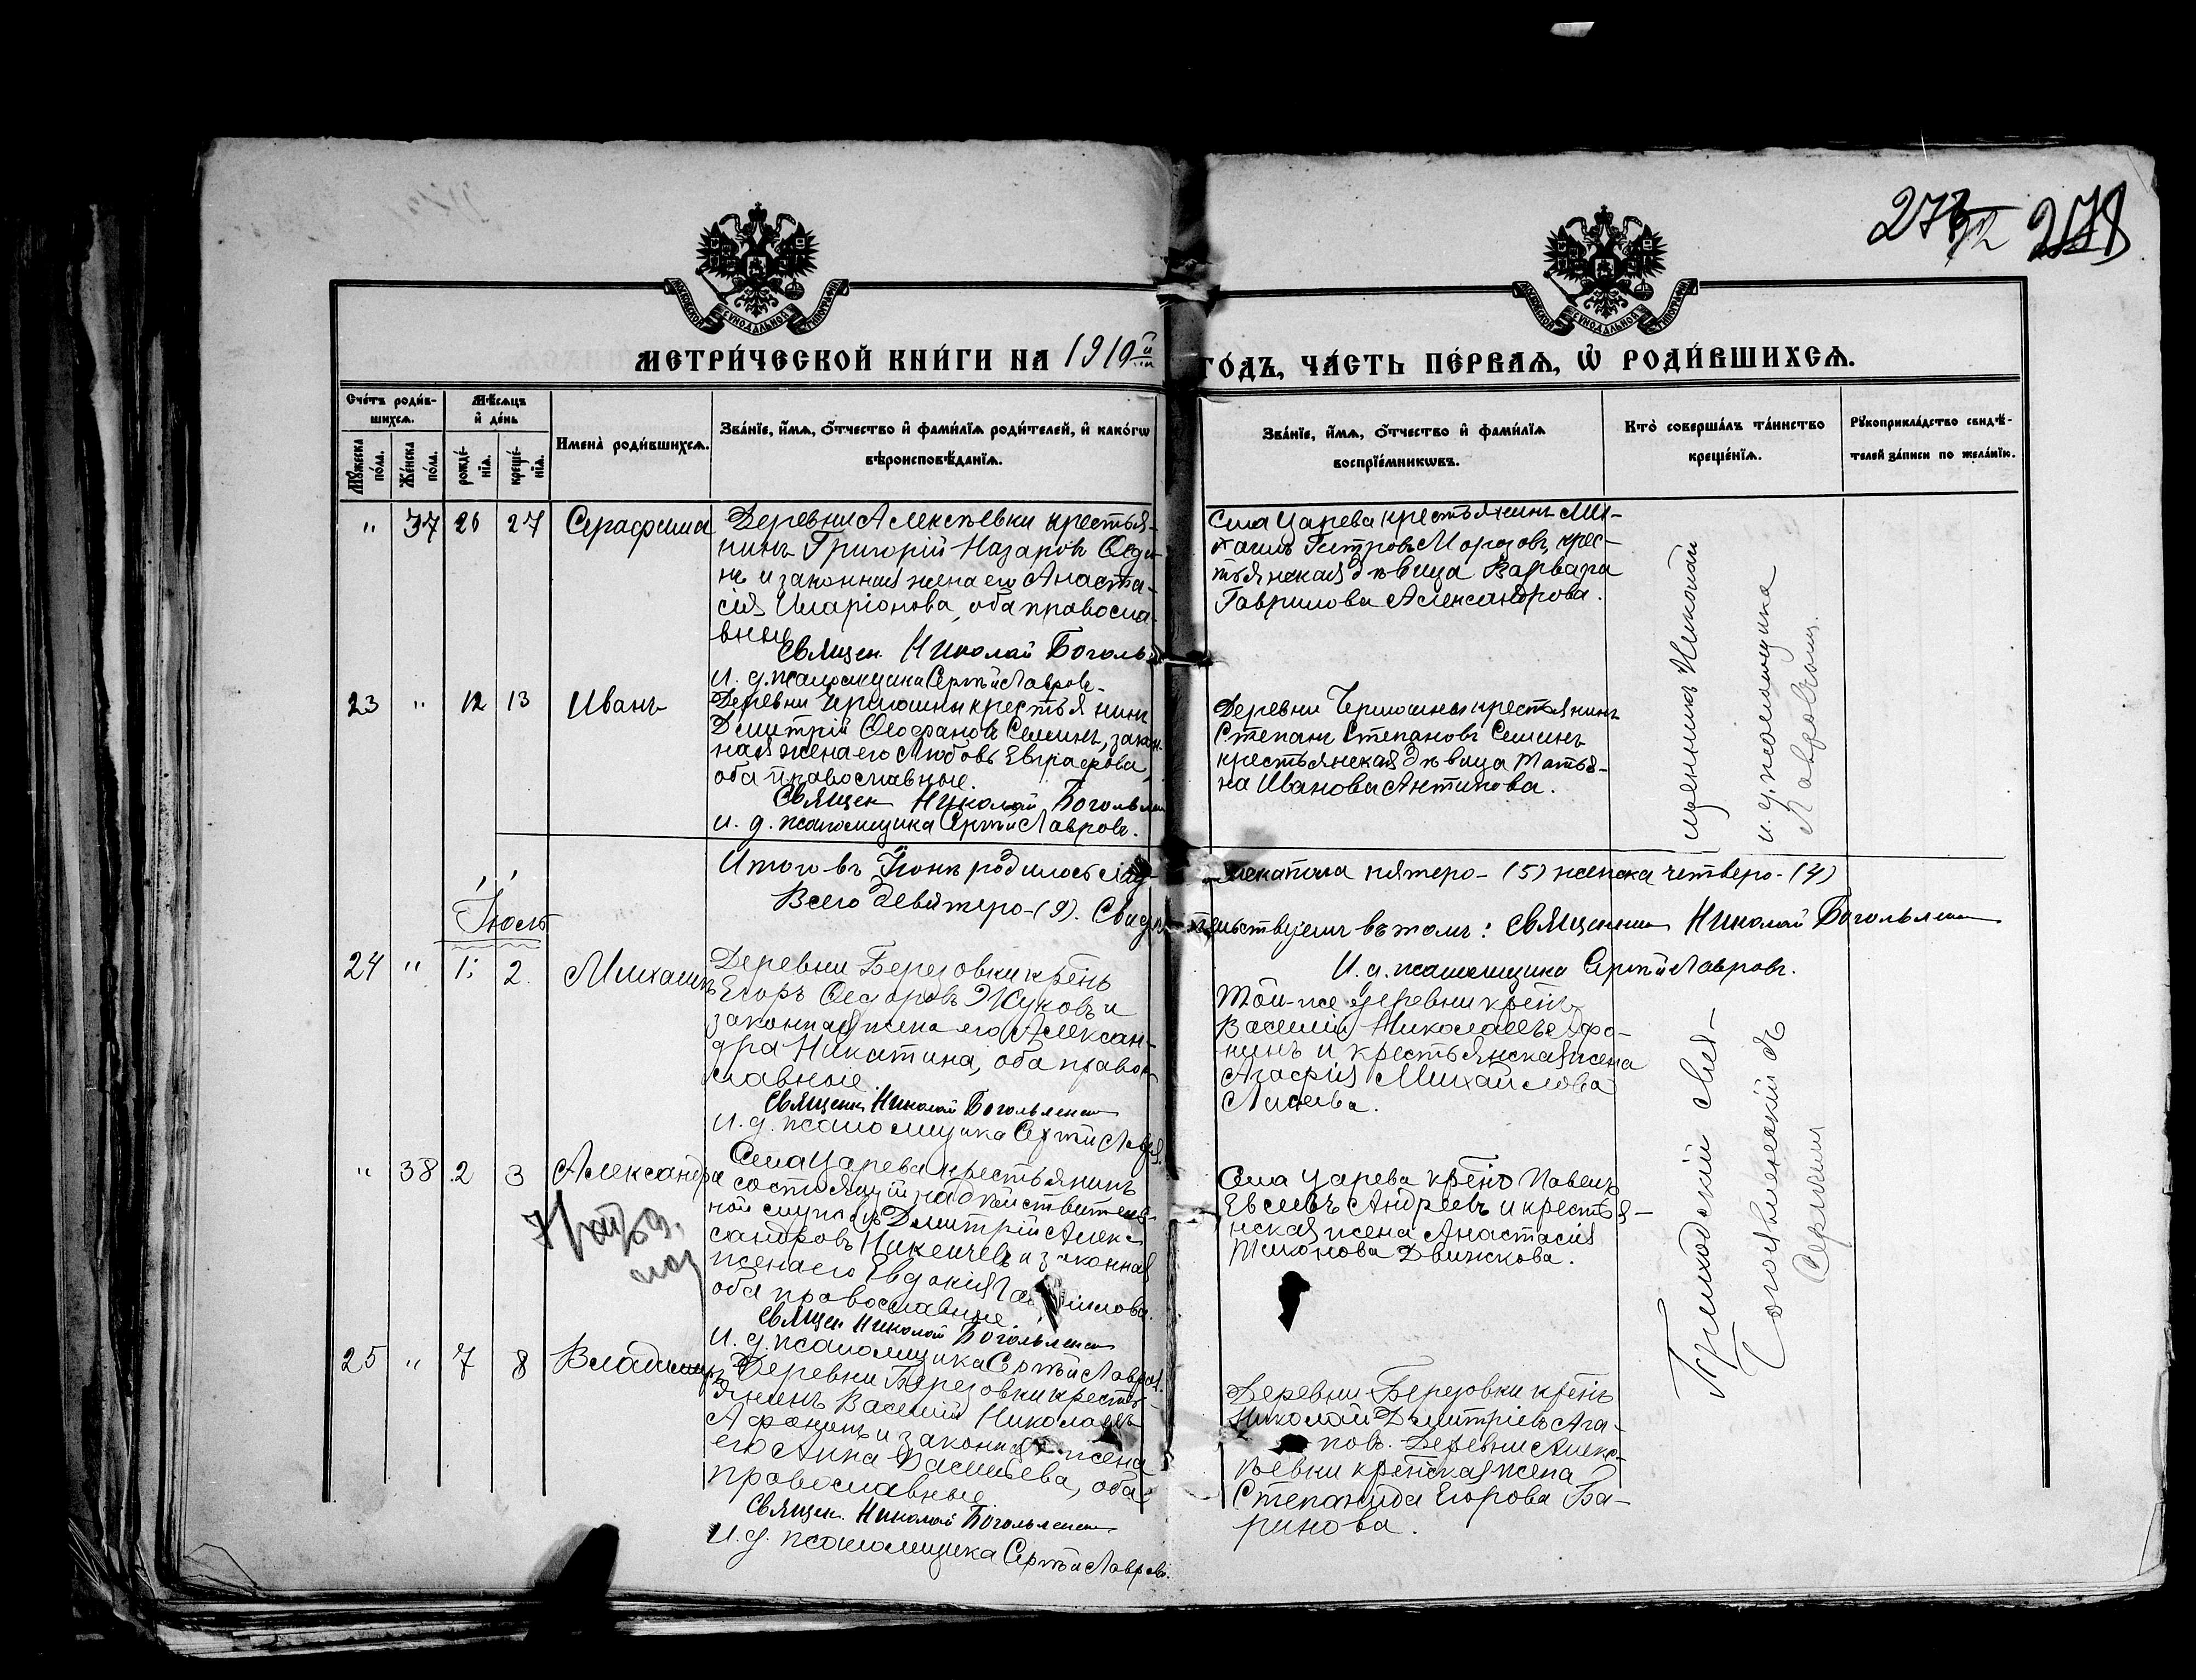 278
МЕТРИ́ЧЕСКОЙ КНИ́ГИ НА 1910й
ГО́ДЪ, ЧА́СТЬ ПЕ́РВАѦ, Ѡ҆ РОДИ́ВШИХСѦ.
Сче́тъ роди́в-
шихсѧ.
Мѣ́сѧцъ
и҆ де́нь
Мꙋ́жеска
по́ла.
Же́нска
по́ла.
рожде́-
нїѧ.
креще́-
нїѧ.
Имена̀ роди́вшихсѧ.
Зва́нїе, и҆́мѧ, ѻ҆́тчество и҆ фами́лїѧ роди́телей, и҆ како́гѡ
вѣроисповѣ́данїѧ.
Зва́нїе, и҆́мѧ, ѻ҆́тчество и҆ фами́лїѧ
воспрїе́мникѡвъ.
Кто̀ соверша́лъ та́инство
креще́нїѧ.
Рꙋкоприкла́дство свидѣ́-
телей за́писи по жела́нїю.
" 37 26 27 Серафима
Деревни Алексѣевки крестья-
нинъ Григорій Назаровъ
и законная жена его Анаста-
сія Иларіонова, оба правосла-
вные
Священ. Николай Боголѣп
И. д. псаломщика Сергѣй Лавровъ.
Села Царева крестьянинъ Ми-
хаилъ Петровъ Морозовъ, крес-
тьянская дѣвица Варвара
Гаврилова Александрова.
23 " 12 13 Иванъ
Деревни Чермошны крестьянинъ
Дмитрій Ѳеофановъ Семинъ, закон.
ная жена его Любовь Евграфова,
оба православные.
Священ Николай Боголѣпен
И. д. псаломщика Сергѣй Лавровъ.
Деревни Чермошны крестьянинъ
Степанъ Степановъ Семинъ
крестьянская дѣвица Татья-
на Иванова Антипова.
Итого въ Іюнѣ родилось муж-
ска пола пятеро - (5) женска четверо - (4)
Всего девятеро - (9). Свидѣ-
тельствуемъ въ томъ: Священник Николай Боголѣпен
И. д. псаломщика Сергѣй Лавровъ.
Іюль
24 " 1 2. Михаилъ
Деревни Березовки кр-нъ
Егоръ Ѳедоровъ Жуковъ и
законная жена его Алексан-
дра Никитина, оба право-
славные
Священик Николай Боголѣпен
И. д. псаломщика Сергѣй Лавров.
Той-же деревни кр-нъ
Василій Николаевъ Афо-
нинъ и крестьянская жена
Агафія Михайлова
" 38 2 3 Александра
Села Царева крестьянинъ
состоящій на дѣйствитель-
ной службѣ Дмитрій Алек-
сандровъ Никеичевъ и законная
жена его Евдокія Гаврилова.
оба православные.
Священ Николай Боголѣпен
И. д. псаломщика Сергѣй Лавров.
Села Царева кр-нъ Павелъ
Евсеевъ Андреевъ и крестья-
нская жена Анастасія
Тихонова Движкова.
25 " 7 8 Владимиръ
Деревни Березовки кресть-
янинъ Василій Николаевъ
Афонинъ и законная жена
его Анна Васильева, оба
православные
Священ. Николай Боголѣпен
И. д. псаломщика Сергѣй Лавровъ.
Деревни Березовки кр-нъ
Николай Дмитріевъ Ага-
повъ. Деревни Алекс-
ѣевки кр-нская жена
Степанида Егорова Ба-
ринова.
Приходскій свя-
щенникъ Николай
Боголѣпенскій съ
и. д. псаломщика
Сергѣемъ
Лавровымъ.